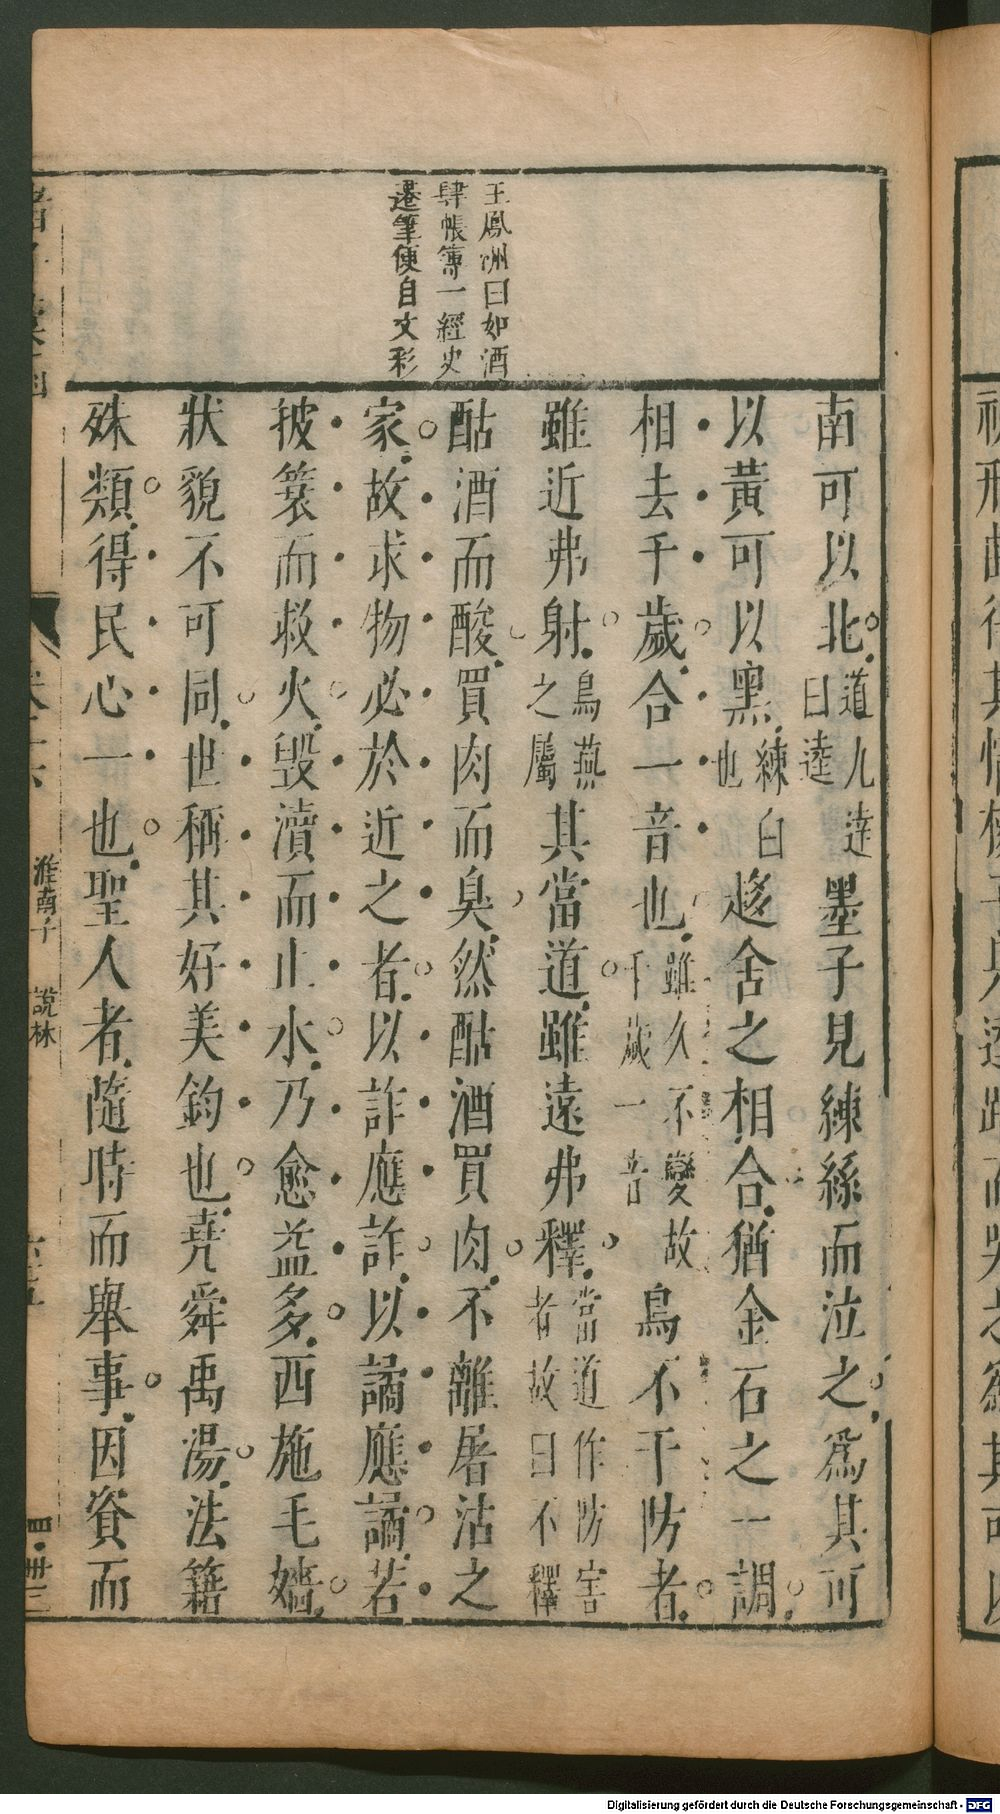 王鳳洲曰如酒
肆帳簿一經史
遷筆便自文彩
南可以北道九達曰逵也墨子見練絲而泣之為其可
以黃可以黑練白也趍舍之相合猶金石之一調
相去千歲合一音也雖久不變故千歲一音鳥不干防者
雖近弗射鳥燕之屬其當道雖遠弗釋當道作防害者故曰不釋
酤酒而酸買肉而臭然酤酒買肉不離屠沽之
家故求物必於近之者以詐應詐以譎應譎若
披蓑而救火毀瀆而止水乃愈益多西施毛嬙
狀貌不可同世稱其好美鈞也堯舜禹湯法籍
殊類得民心一也聖人者隨時而舉事因資而
淮南子 說林
Digitalisierung gefördert durch die Deutsche Forschungsgemeinschaft - DFG